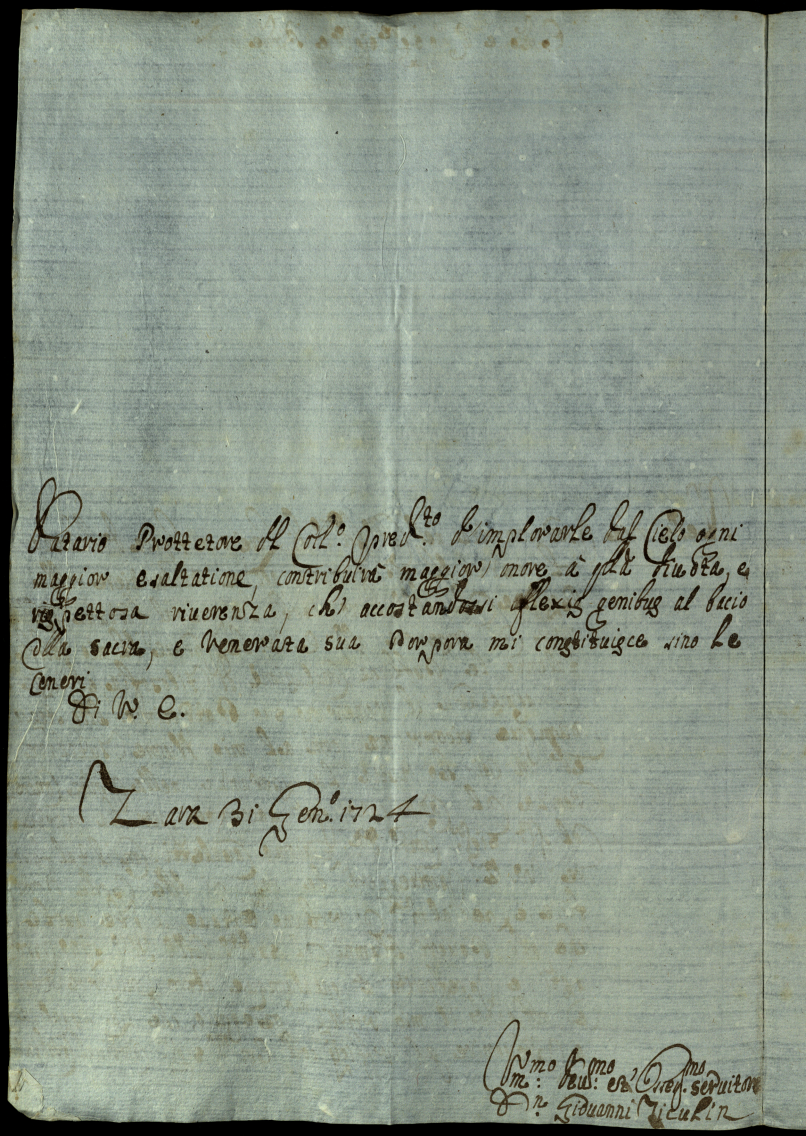 Datario Prottetore dl Coll.º pred.to d'implorarle dal Cielo ogni
maggior esaltatione, contribuirà maggior onore à qlla divota, e
rispettosa riverenza, che accostandosi flexis genibus al bacio
dlla sacra, e venerata sua Porpora mi constituisce sino le
Ceneri
Di V. E.
Zara 31 Gen.º 1724
V.mo Dev.mo et Osseq.mo servitore
D.n Giovanni